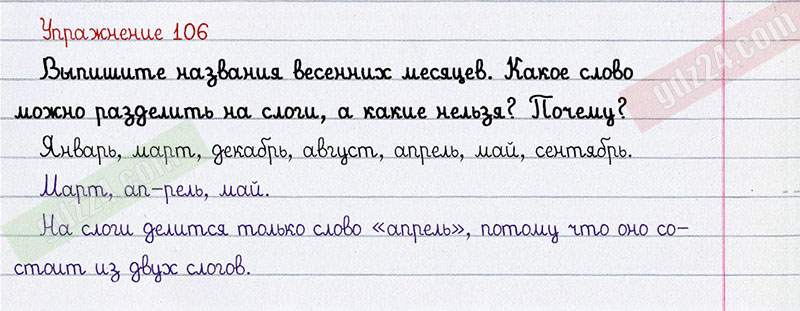 Упражнение 106
Выпишите названия весенних месяцев. Какое слово
можно разделить на слоги, а какие нельзя? Почему?
Январь, март, декабрь, август, апрель, май, сентябрь.
Март, ап-рель, май.
На слоги делится только слово «апрель», потому что оно со-
стоит из двух слогов.
gdz24.com
gdz24.com